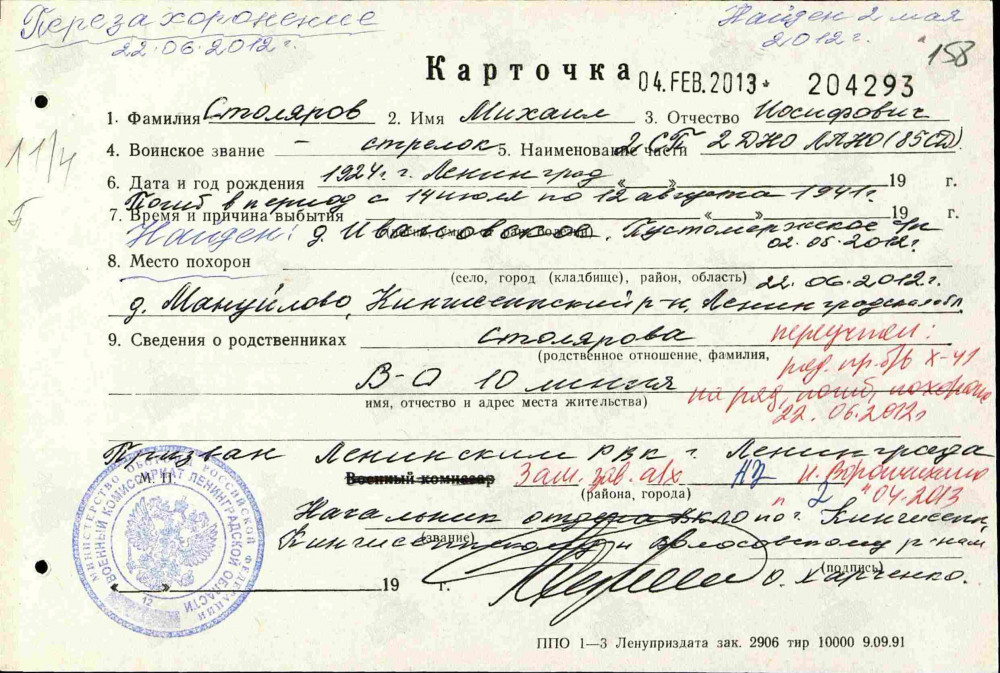 Перезахоронение
22.06.2012г.
Найден 2 мая
2012г.
158
Карточка
04.FEB.2013* 204293
11/4
1. Фамилия Столяров 2. Имя Михаил 3. Отчество Иосифович
4. Воинское звание – стрелок 5. Наименование части 2 СП 2 ДНО ЛАНО (85СД)
6. Дата и год рождения 1924г. г. Ленинград « » 19 г.
Погиб в период с 14 июля по 12 августа 1941г.
7. Время и причина выбытия « » 19 г.
Найден: д. Ивановское, Пустомержское
02.05.2012г.
8. Место похорон
(село, город (кладбище), район, область) 22.06.2012г.
д. Мануйлово, Кингисеппский р-н, Ленинградская обл.
9. Сведения о родственниках Столярова
(родственное отношение, фамилия,
В-О 10 линия
имя, отчество и адрес места жительства)
переучтен:
ряд. пр. б/в X-41
на ряд. погиб, похоронен
22.06.2012г
Призван Ленинским РВК г. Ленинграда
М. П. Военный комиссар Зам. зав. а/х
(района, города)
04.2013
Начальник отдела ВКЛО по г. Кингисепп,
(звание)
Кингисеппскому и Волосовскому р-нам
« » 19 г.
(подпись)
О. Харченко.
МИНИСТЕРСТВО ОБОРОНЫ РОССИЙСКОЙ ФЕДЕРАЦИИ
ВОЕННЫЙ КОМИССАРИАТ ЛЕНИНГРАДСКОЙ ОБЛАСТИ
12
ППО 1—3 Ленуприздата зак. 2906 тир 10000 9.09.91